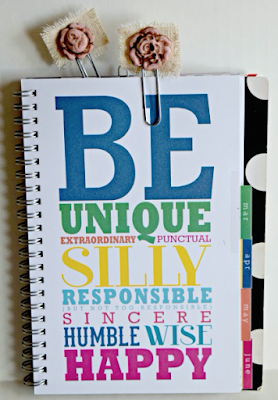 BE
UNIQUE
EXTRAORDINARY PUNCTUAL
SILLY
RESPONSIBLE
(BUT NOT TOO RESPONSIBLE)
SINCERE
HUMBLE WISE
HAPPY
mar
apr
may
june